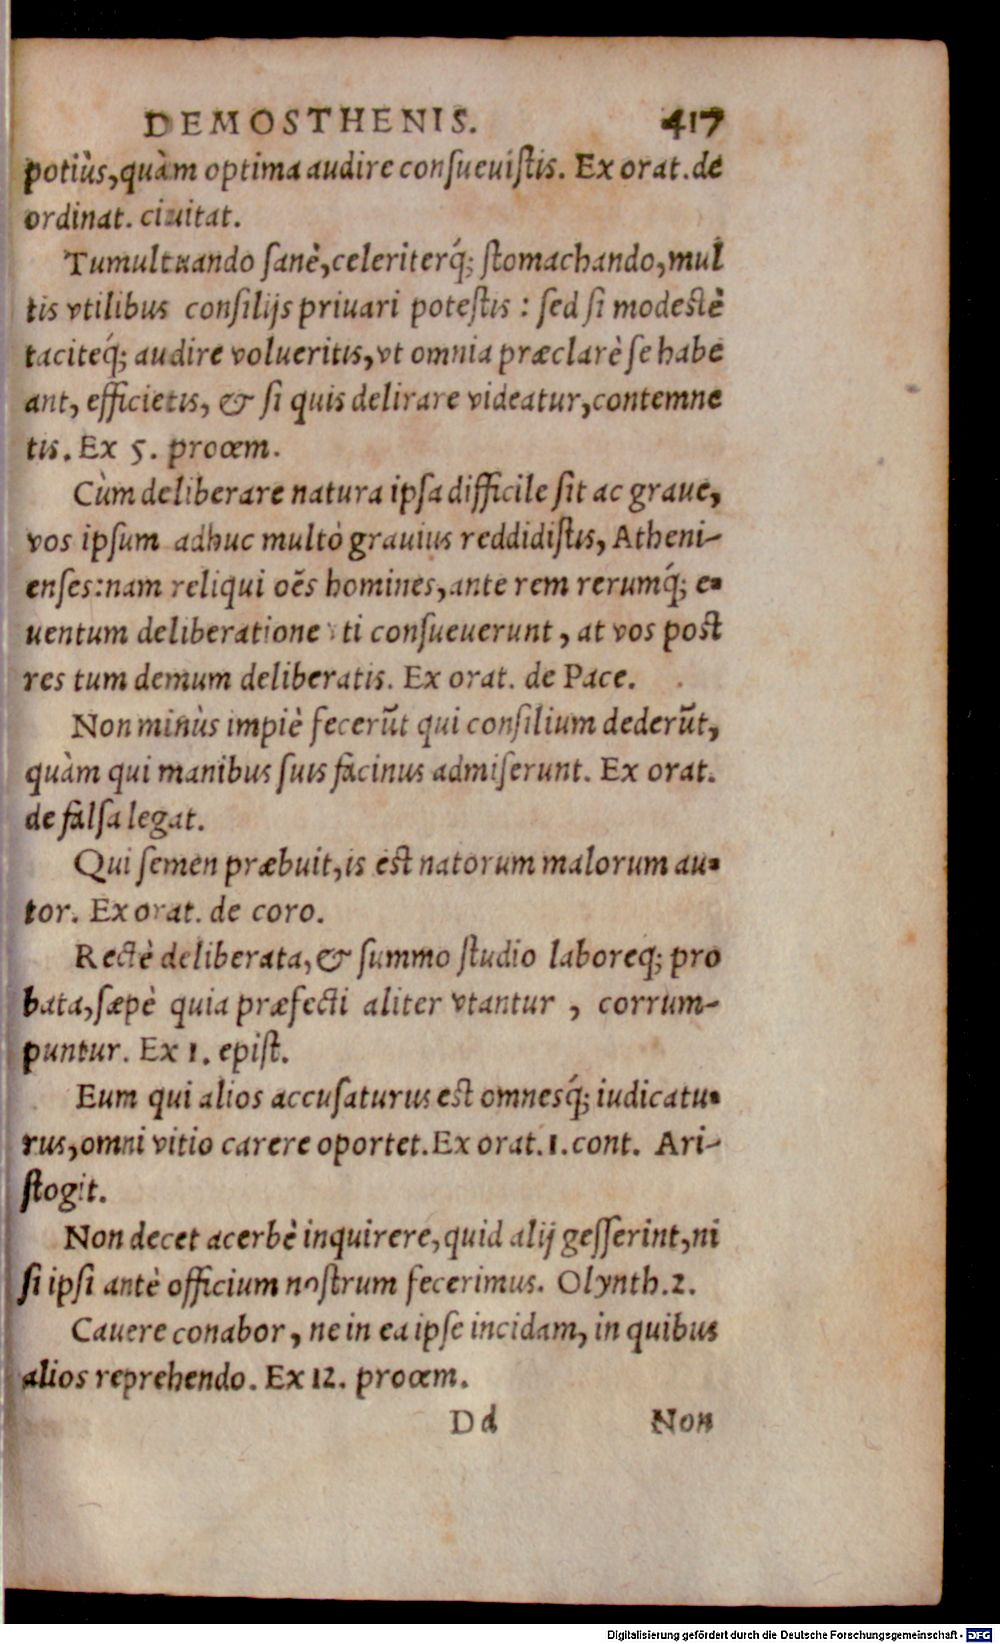 DEMOSTHENIS. 417
potiùs, quàm optima audire consueuistis. Ex orat. de
ordinat. ciuitat.
Tumultuando sanè, celeriterq́; stomachando, mul
tis vtilibus consilijs priuari potestis : sed si modestè
taciteq́; audire volueritis, vt omnia præclarè se habe
ant, efficietis, & si quis delirare videatur, contemne
tis. Ex 5. proœm.
Cùm deliberare natura ipsa difficile sit ac graue,
vos ipsum adhuc multò grauius reddidistis, Atheni-
enses: nam reliqui oẽs homines, ante rem rerumq́; e-
uentum deliberatione ti consueuerunt, at vos post
res tum demum deliberatis. Ex orat. de Pace.
Non minùs impiè fecerũt qui consilium dederũt,
quàm qui manibus suis facinus admiserunt. Ex orat.
de falsa legat.
Qui semen præbuit, is est natorum malorum au-
tor. Ex orat. de coro.
Rectè deliberata, & summo studio laboreq; pro
bata, sæpè quia præfecti aliter vtantur, corrum-
puntur. Ex 1. epist.
Eum qui alios accusaturus est omnesq́; iudicatu-
rus, omni vitio carere oportet. Ex orat. 1. cont. Ari-
stogit.
Non decet acerbè inquirere, quid alij gesserint, ni
si ipsi antè officium nostrum fecerimus. Olynth. 2.
Cauere conabor, ne in ea ipse incidam, in quibus
alios reprehendo. Ex 12. proœm.
Dd Non
Digitalisierung gefördert durch die Deutsche Forschungsgemeinschaft - DFG